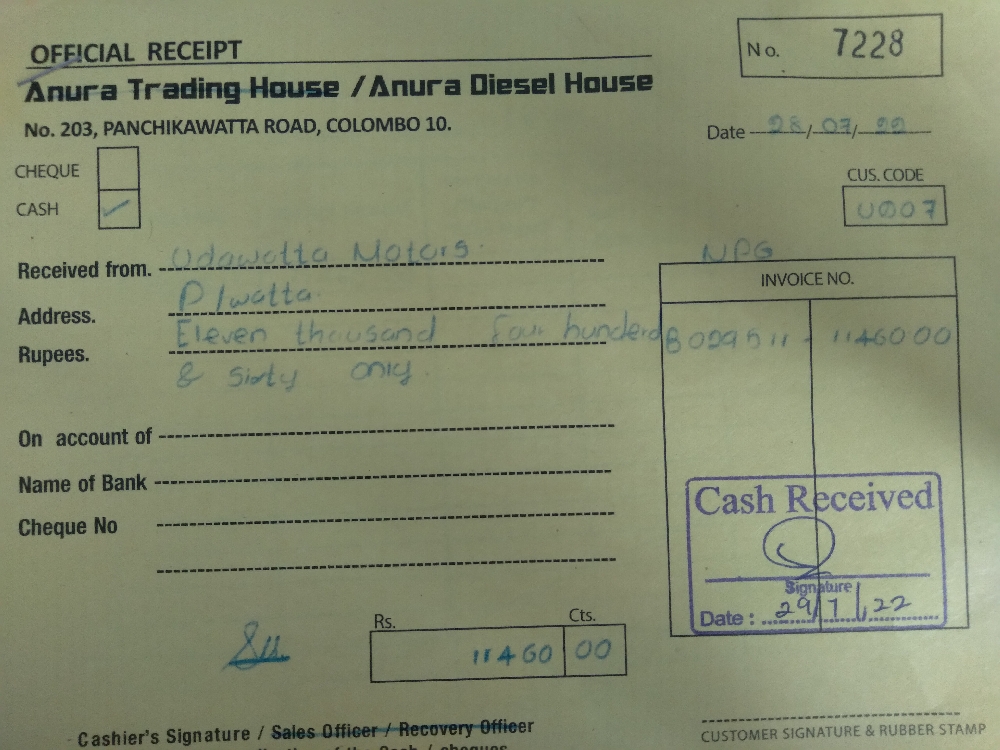 OFFICIAL RECEIPT
No. 7228
Anura Trading House / Anura Diesel House
No. 203, PANCHIKAWATTA ROAD, COLOMBO 10.
Date 28/07/22
CHEQUE
CUS. CODE
CASH ✓
U007
Received from. Udawatta Motors
NPG
Address. P/watta.
INVOICE NO.
Rupees. Eleven thousand four hunderd
B029511 - 11460 00
& sixty only.
On account of
Name of Bank
Cheque No
Cash Received
Signature
Date : 29/7/22
Rs. Cts.
11460 00
Cashier's Signature / Sales Officer / Recovery Officer
CUSTOMER SIGNATURE & RUBBER STAMP